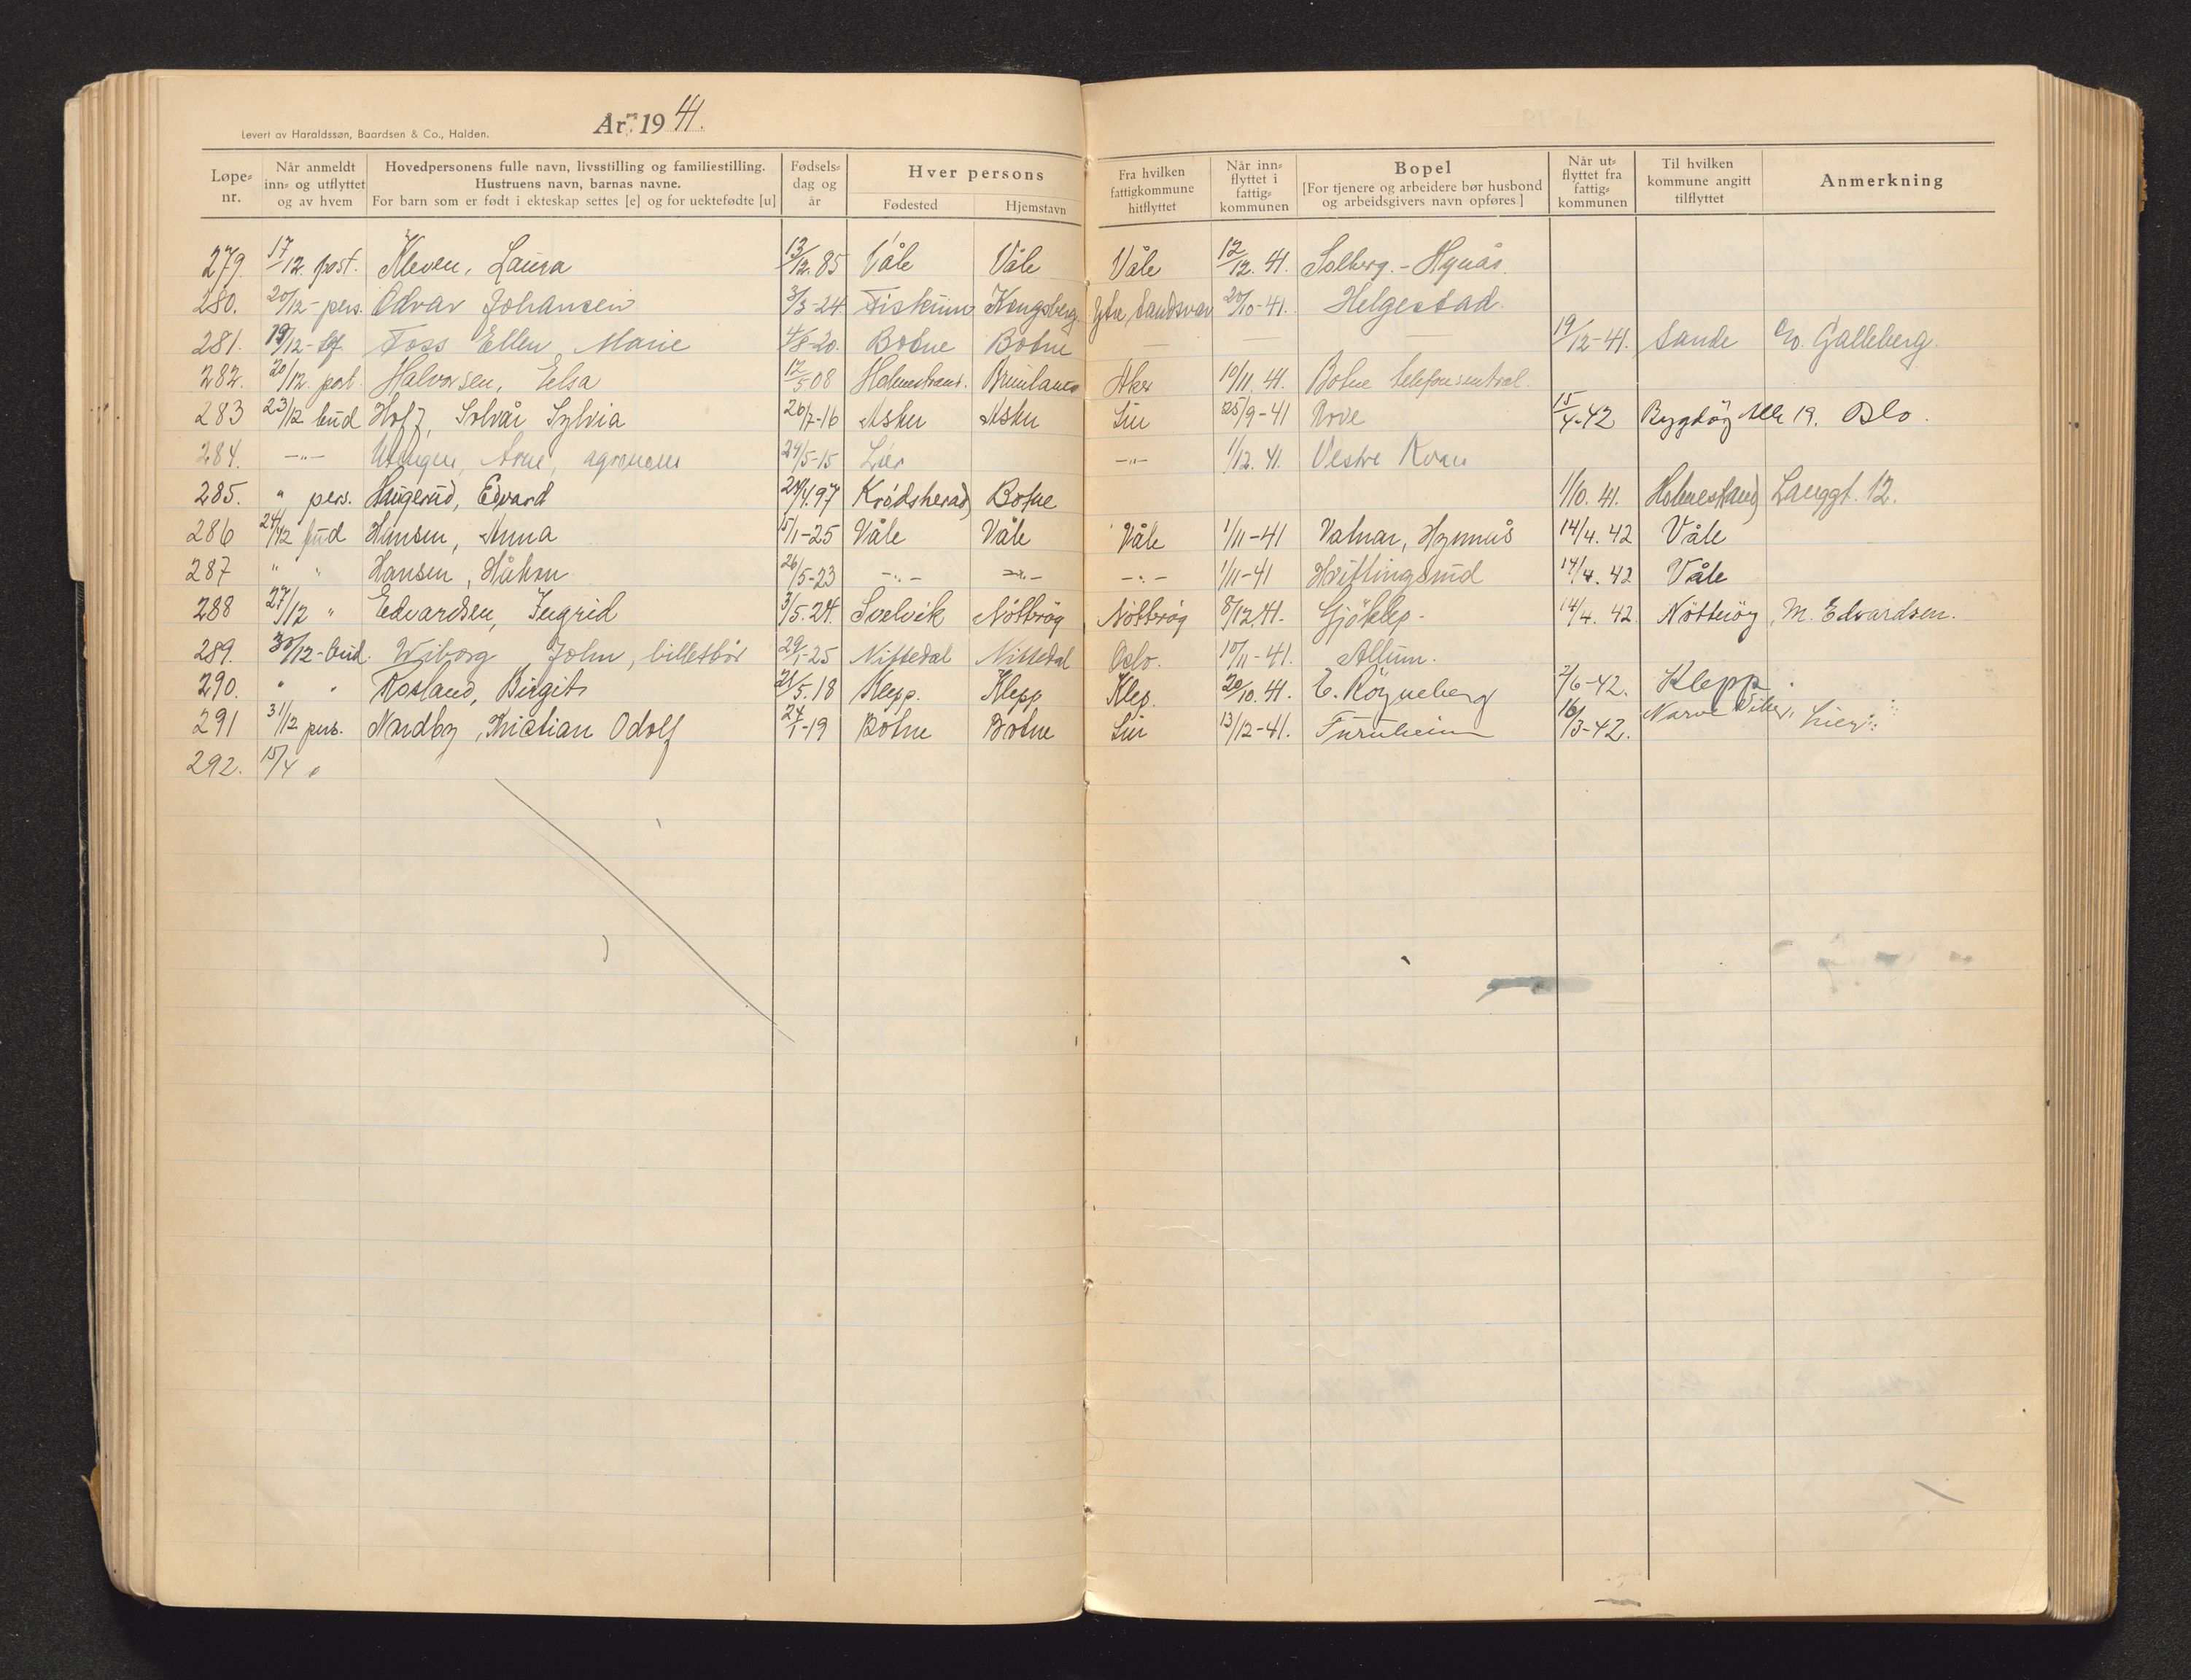 Levert av Haraldssøn, Baardsen & Co., Halden.
År 1941.
Løpe-nr. Når anmeldt inn- og utflyttet og av hvem Hovedpersonens fulle navn, livsstilling og familiestilling. Hustruens navn, barnas navne. For barn som er født i ekteskap settes [e] og for uektefødte [u] Fødsels-dag og år Hver persons Fødested Hjemstavn Fra hvilken fattigkommune hitflyttet Når inn-flyttet i fattig-kommunen Bopel [For tjenere og arbeidere bør husbond og arbeidsgivers navn opføres] Når ut-flyttet fra fattig-kommunen Til hvilken kommune angitt tilflyttet Anmerkning
279. 17/12. post. Kleven, Laura 13/12. 85 Våle Våle Våle 12/12. 41. Solberg.-Hynås.
280. 20/12- pers. Odvar Johansen 3/3-24. Fiskum Kongsberg. Ytre Sandsvær 20/10-41. Helgestad.
281. 19/12- Foss Ellen Marie 4/8-20. Botne Botne — — — 19/12-41. Sande c/o. Galleberg.
282. 20/12. post. Halvorsen, Elsa 12/5 08 Holmestrand. Brunlanes Aker 10/11. 41. Botne telefonsentral.
283 23/12 bud Hoff, Solvår Sylvia 26/7-16 Asker Asker Lier 25/9-41 Rove 15/4-42 Bygdøy Alle 19. Oslo.
284. —"— Arne, agronom 29/5-15 Lier —"— 1/12. 41. Vestre Kvan
285. " pers. Haugerud, Edvard 28/4. 97 Krødsherad Botne 1/10. 41. Holmestrand Langgt. 12.
286 24/12 bud Hansen, Anna 15/1-25 Våle Våle Våle 1/11-41 Vatnar, Hynnås 14/4. 42 Våle
287 " " Hansen, Håkon 26/5-23 —"— —"— —"— 1/11-41 Hvittingsrud 14/4. 42 Våle
288 27/12 " Edvardsen, Ingrid 3/5. 24. Svelvik Nøtterøy Nøtterøy 8/12 41. Gjøklep- 14/4. 42 Nøtterøy, M. Edvardsen.
289. 30/12-bud. Wiborg John, billettør 29/1-25 Nittedal Nittedal Oslo. 10/11-41. Allum.
290. " " Rosland, Birgit 21/5. 18 Klepp. Klepp Klep. 20/10. 41. E. Røyneberg 2/6-42. Klepp.
291 31/12 pers. Nordby, Kristian Odolf 24/1-19 Botne Botne Lier 13/12-41. Furuheim 16/3-42. Narve Lier.
292. 15/4 "